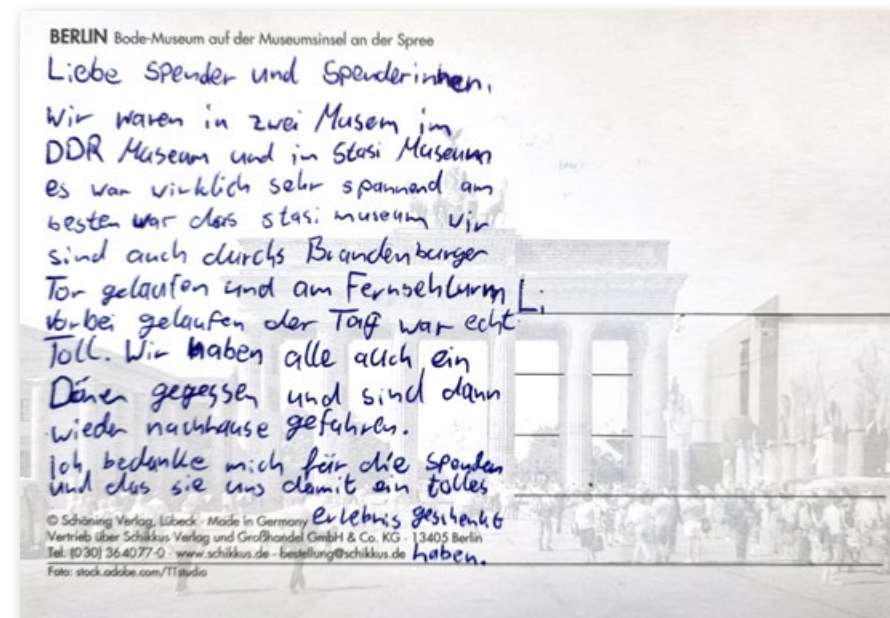 BERLIN Bode-Museum auf der Museumsinsel an der Spree
Liebe Spender und Spenderinnen,
Wir waren in zwei Musem im
DDR Museum und im Stasi Museum
es war wirklich sehr spannend am
besten war das stasi museum wir
sind auch durchs Brandenburger
Tor gelaufen und am Fernsehturm Li
vorbei gelaufen der Tag war echt
Toll. Wir haben alle auch ein
Döner gegessen und sind dann
wieder nachhause gefahren.
ich bedanke mich für die Spenden
und das sie uns damit ein tolles
erlebnis geschenkt
haben.
© Schöning Verlag, Lübeck · Made in Germany
Vertrieb über Schikkus Verlag und Großhandel GmbH & Co. KG · 13405 Berlin
Tel. (030) 364077-0 · www.schikkus.de · bestellung@schikkus.de
Foto: stock.adobe.com/TTstudio